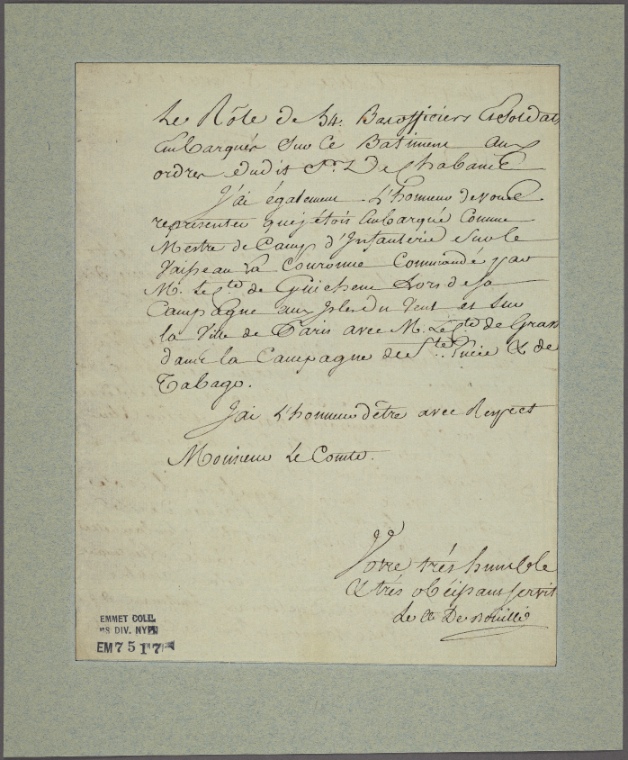 Le Rôle de 54. Bas officiers et Soldats
Embarqués Sur ce Batiment aux
ordres dudit Sr. De Chabane
J'ai également L'honneur de vous
representer que j'étois Embarqué Comme
Mestre de Camp d'Infanterie Sur le
Vaisseau La Couronne Commandé par
M. Le Cte de Guichen Lors de sa
Campagne aux Isles du Vent et sur
la Ville de Paris avec M. Le Cte de Grasse
dans la Campagne de Ste. Lucie & de
Tabago.
J'ai L'honneur d'être avec Respect
Monsieur Le Comte.
Votre très humble
& très obéissant servit
Le Cte De
EMMET COLL.
MS DIV. NYPL
EM 7517